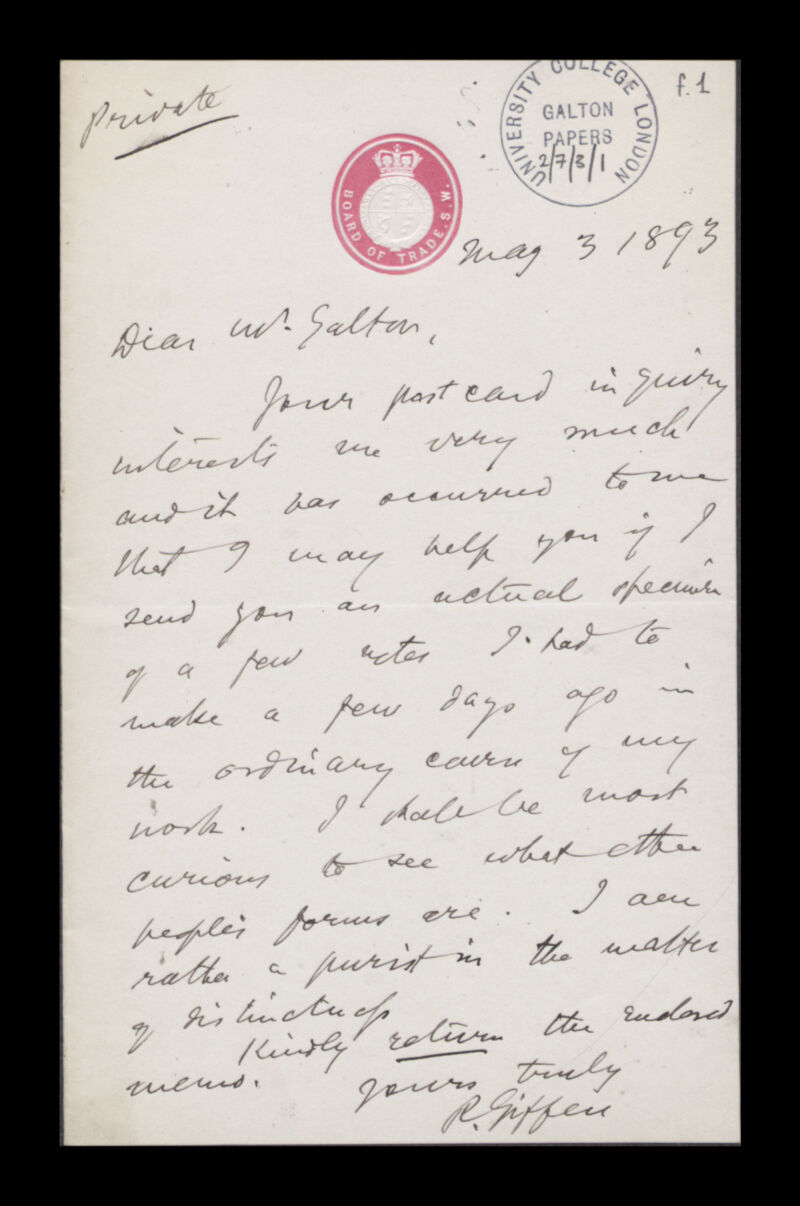 Private
UNIVERSITY COLLEGE LONDON
GALTON
PAPERS
2/7/3/1
f. 1
BOARD OF TRADE. S.W.
May 3 1893
Dear Mr. Galton,
Your postcard inquiry
interests me very much
and it has occurred to me
that I may help you if I
send you an actual specimen
of a few notes I had to
make a few days ago in
the ordinary course of my
work. I shall be most
curious to see what other
people's forms are. I am
rather a purist in the matter
of distinctness
Kindly return the enclosed
memo. Yours truly
R. Giffen